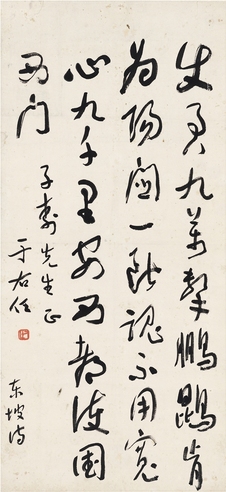 使君九萬擊鵬鵾肯
為陽關一斷魂不用寬
心九千里安西都護國
西門
子壽先生正
于右任
東坡詩